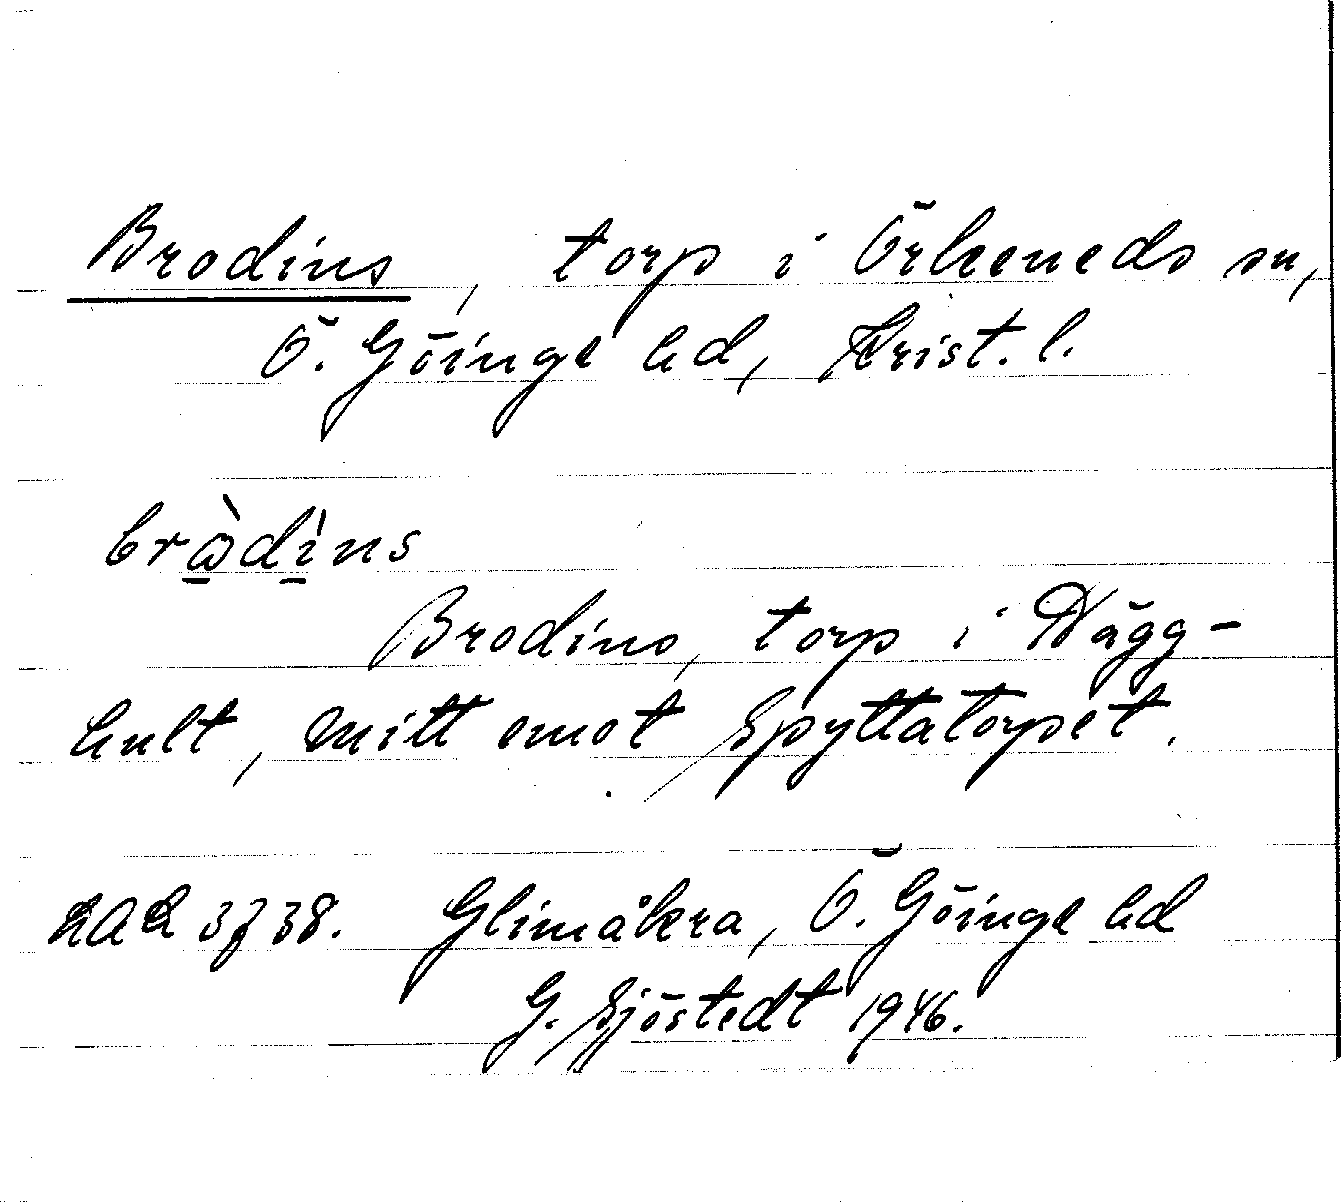 Brodins, torp i Örkeneds sn,
Ö. Göinge hd, Krist. l.
brὼ̱dì̱ns
Brodins, torp i Hägg-
hult, mitt emot Spyttatorpet.
3738. Glimåkra, Ö. Göinge hd
G. Sjöstedt 1946.